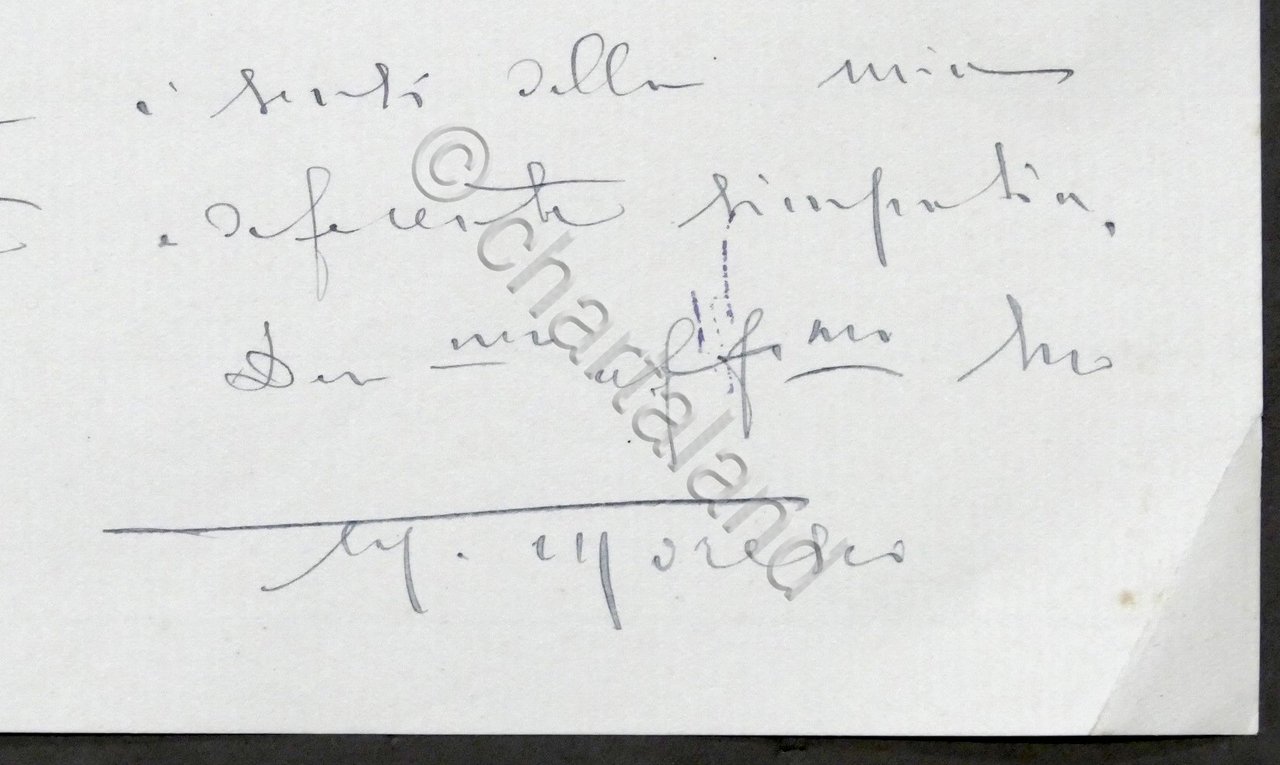 i sensi della mia
e deferente simpatia.
Dev mo aff mo Suo
© chartaland